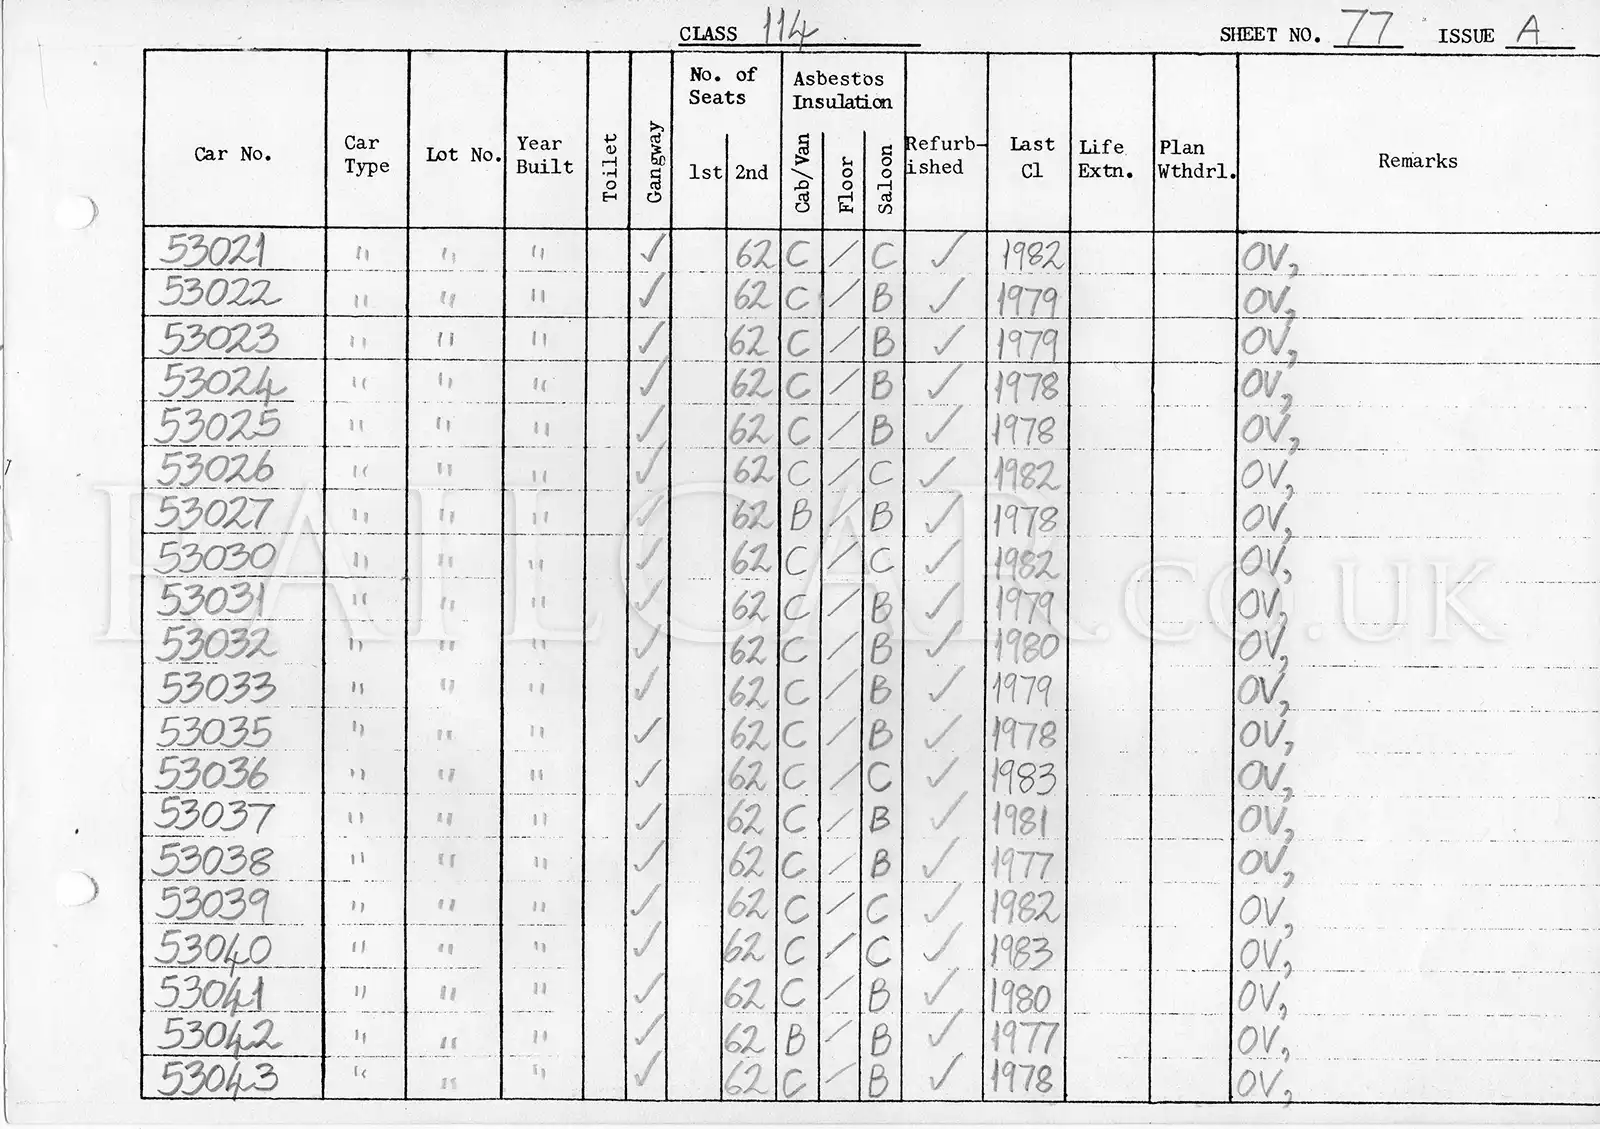 CLASS 114 SHEET NO. 77 ISSUE A
Car No. Car Type Lot No. Year Built Toilet Gangway No. of Seats 1st 2nd Asbestos Insulation Cab/Van Floor Saloon Refurb-ished Last Cl Life Extn. Plan Wthdrl. Remarks
53021 " " " ✓ 62 C / C ✓ 1982 OV,
53022 " " " ✓ 62 C / B ✓ 1979 OV,
53023 " " " ✓ 62 C / B ✓ 1979 OV,
53024 " " " ✓ 62 C / B ✓ 1978 OV,
53025 " " " ✓ 62 C / B ✓ 1978 OV,
53026 " " " ✓ 62 C / C ✓ 1982 OV,
53027 " " " ✓ 62 B / B ✓ 1978 OV,
53030 " " " ✓ 62 C / C ✓ 1982 OV,
53031 " " " ✓ 62 C / B ✓ 1979 OV,
53032 " " " ✓ 62 C / B ✓ 1980 OV,
53033 " " " ✓ 62 C / B ✓ 1979 OV,
53035 " " " ✓ 62 C / B ✓ 1978 OV,
53036 " " " ✓ 62 C / C ✓ 1983 OV,
53037 " " " ✓ 62 C / B ✓ 1981 OV,
53038 " " " ✓ 62 C / B ✓ 1977 OV,
53039 " " " ✓ 62 C / C ✓ 1982 OV,
53040 " " " ✓ 62 C / C ✓ 1983 OV,
53041 " " " ✓ 62 C / B ✓ 1980 OV,
53042 " " " ✓ 62 B / B ✓ 1977 OV,
53043 " " " ✓ 62 C / B ✓ 1978 OV,
RAILCAR.CO.UK